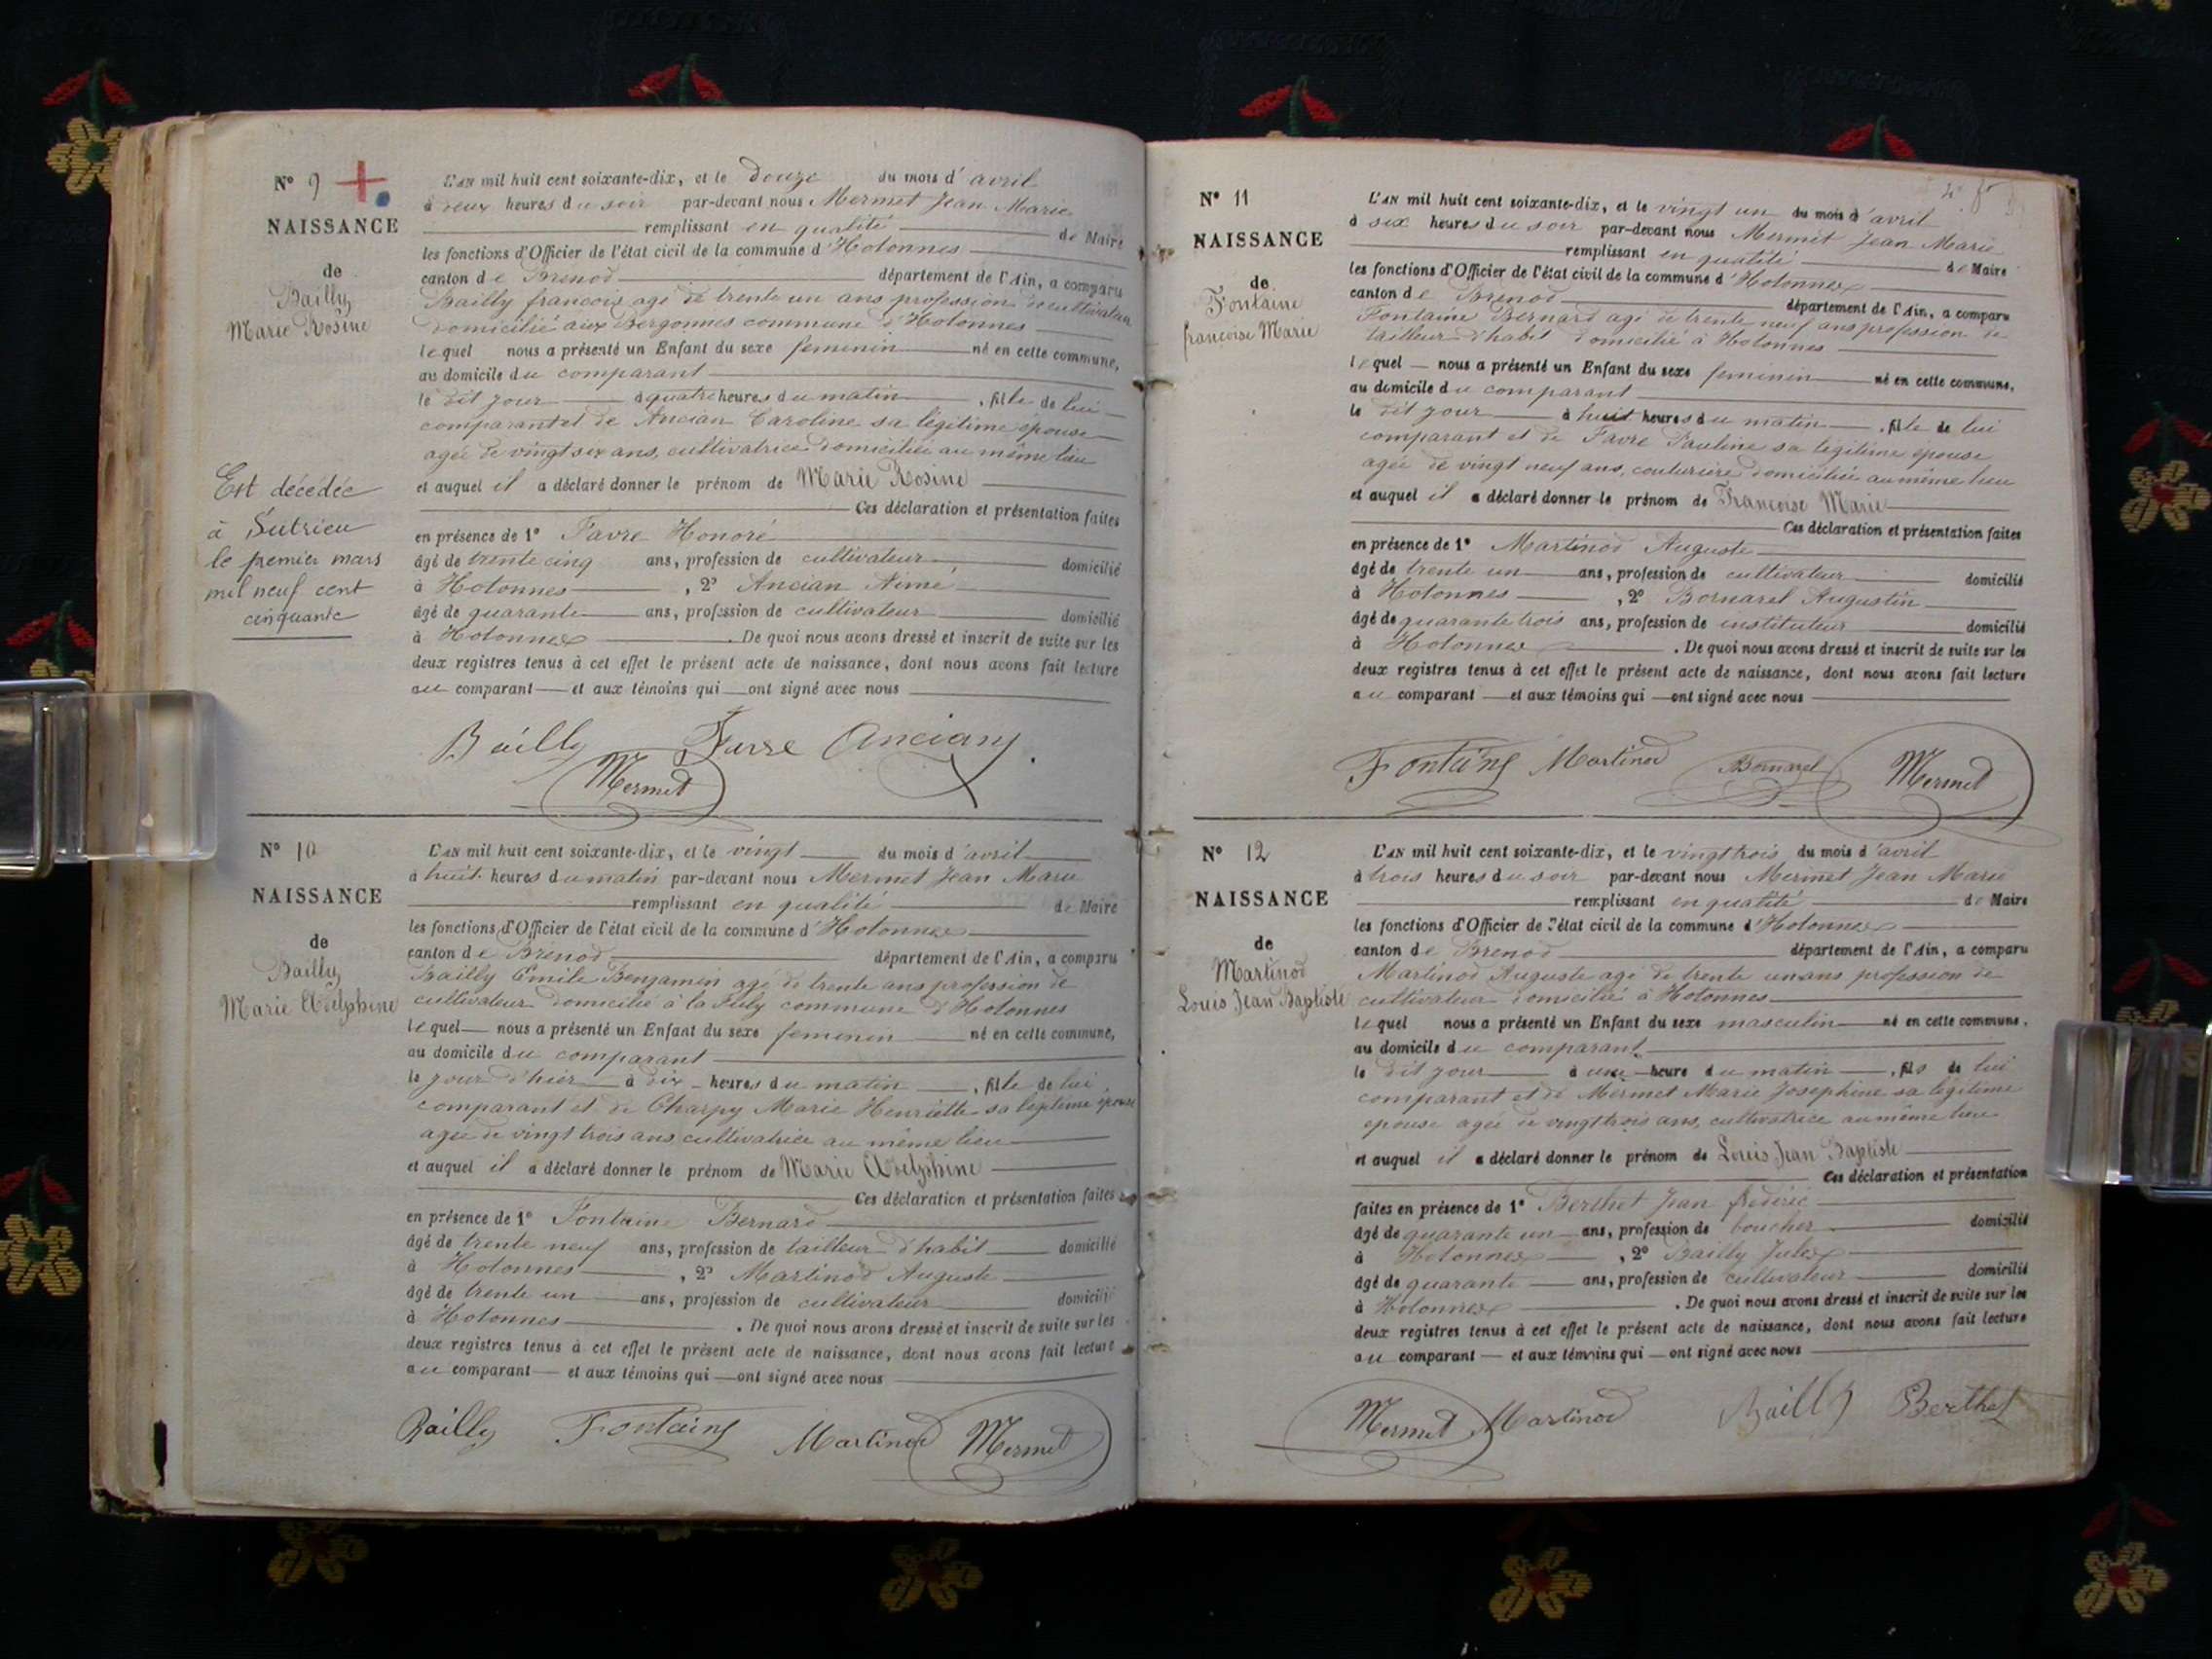 N° 9
NAISSANCE
de
Bailly
Marie Rosine
Est décédée
à Sutrieu
le premier mars
mil neuf cent
cinquante
L'AN mil huit cent soixante-dix, et le douze du mois d'avril
à deux heures du soir par-devant nous Mermet Jean Marie
remplissant en qualité de Maire
les fonctions d'Officier de l'état civil de la commune d'Hotonnes
canton de Brenod département de l'Ain, a comparu
Bailly francois agé de trente un ans profession de cultivateur
domicilié aux Bergonnes commune d'Hotonnes
lequel nous a présenté un Enfant du sexe feminin né en cette commune,
au domicile du comparant
le dit jour à quatre heures du matin, fille de lui
comparant et de Ancian Caroline sa légitime épouse
agée de vingt six ans, cultivatrice domiciliée au même lieu
et auquel il a déclaré donner le prénom de Marie Rosine
Ces déclaration et présentation faites
en présence de 1° Favre Honoré
âgé de trente cinq ans, profession de cultivateur domicilié
à Hotonnes, 2° Ancian Aimé
âgé de quarante ans, profession de cultivateur domicilié
à Hotonnes. De quoi nous avons dressé et inscrit de suite sur les
deux registres tenus à cet effet le présent acte de naissance, dont nous avons fait lecture
au comparant et aux témoins qui ont signé avec nous
Bailly Favre Anciany
Mermet
N° 10
NAISSANCE
de
Bailly
Marie Adelphine
L'AN mil huit cent soixante-dix, et le vingt du mois d'avril
à huit heures du matin par-devant nous Mermet Jean Marie
remplissant en qualité de Maire
les fonctions d'Officier de l'état civil de la commune d'Hotonnes
canton de Brenod département de l'Ain, a comparu
Bailly Emile Benjamin agé de trente ans profession de
cultivateur domicilié à la commune d'Hotonnes
lequel nous a présenté un Enfant du sexe feminin né en cette commune,
au domicile du comparant
le jour d'hier à dix heures du matin, fille de lui
comparant et de Charpy Marie Henriette sa légitime épouse
agée de vingt trois ans cultivatrice au même lieu
et auquel il a déclaré donner le prénom de Marie Adelphine
Ces déclaration et présentation faites
en présence de 1° Fontaine Bernard
âgé de trente neuf ans, profession de tailleur d'habit domicilié
à Hotonnes, 2° Martinod Auguste
âgé de trente un ans, profession de cultivateur domicilié
à Hotonnes. De quoi nous avons dressé et inscrit de suite sur les
deux registres tenus à cet effet le présent acte de naissance, dont nous avons fait lecture
au comparant et aux témoins qui ont signé avec nous
Bailly Fontaine Martinod Mermet
N° 11
NAISSANCE
de
Fontaine
francoise Marie
L'AN mil huit cent soixante-dix, et le vingt un du mois d'avril
à six heures du soir par-devant nous Mermet Jean Marie
remplissant en qualité de Maire
les fonctions d'Officier de l'état civil de la commune d'Hotonnes
canton de Brenod département de l'Ain, a comparu
Fontaine Bernard agé de trente neuf ans profession de
tailleur d'habit domicilié à Hotonnes
lequel nous a présenté un Enfant du sexe feminin né en cette commune,
au domicile du comparant
le dit jour à huit heures du matin, fille de lui
comparant et de Favre Pauline sa légitime épouse
agée de vingt neuf ans, couturiere domiciliée au même lieu
et auquel il a déclaré donner le prénom de Francoise Marie
Ces déclaration et présentation faites
en présence de 1° Martinod Auguste
âgé de trente un ans, profession de cultivateur domicilié
à Hotonnes, 2° Bornarel Augustin
âgé de quarante trois ans, profession de instituteur domicilié
à Hotonnes. De quoi nous avons dressé et inscrit de suite sur les
deux registres tenus à cet effet le présent acte de naissance, dont nous avons fait lecture
au comparant et aux témoins qui ont signé avec nous
Fontaine Martinod Bornarel Mermet
N° 12
NAISSANCE
de
Martinod
Louis Jean Baptiste
L'AN mil huit cent soixante-dix, et le vingt trois du mois d'avril
à trois heures du soir par-devant nous Mermet Jean Marie
remplissant en qualité de Maire
les fonctions d'Officier de l'état civil de la commune d'Hotonnes
canton de Brenod département de l'Ain, a comparu
Martinod Auguste agé de trente un ans profession de
cultivateur domicilié à Hotonnes
lequel nous a présenté un Enfant du sexe masculin né en cette commune,
au domicile du comparant
le dit jour à une heure du matin, fils de lui
comparant et de Mermet Marie Josephine sa légitime
épouse agée de vingt trois ans, cultivatrice au même lieu
et auquel il a déclaré donner le prénom de Louis Jean Baptiste
Ces déclaration et présentation
faites en présence de 1° Berthet Jean frédéric
âgé de quarante un ans, profession de boucher domicilié
à Hotonnes, 2° Bailly Jules
âgé de quarante ans, profession de cultivateur domicilié
à Hotonnes. De quoi nous avons dressé et inscrit de suite sur les
deux registres tenus à cet effet le présent acte de naissance, dont nous avons fait lecture
au comparant et aux témoins qui ont signé avec nous
Mermet Martinod Bailly Berthet